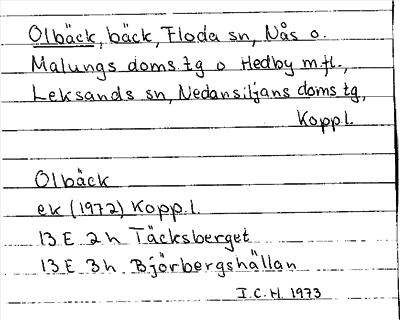 Olbäck, bäck, Floda sn, Nås o.
Malungs doms.tg o Hedby m fl.,
Leksands sn, Nedansiljans doms tg,
Kopp l.
Olbäck
ek (1972) Kopp. l.
13 E 2h Täcksberget
13 E 3h Björbergshällan
I.C.H. 1973